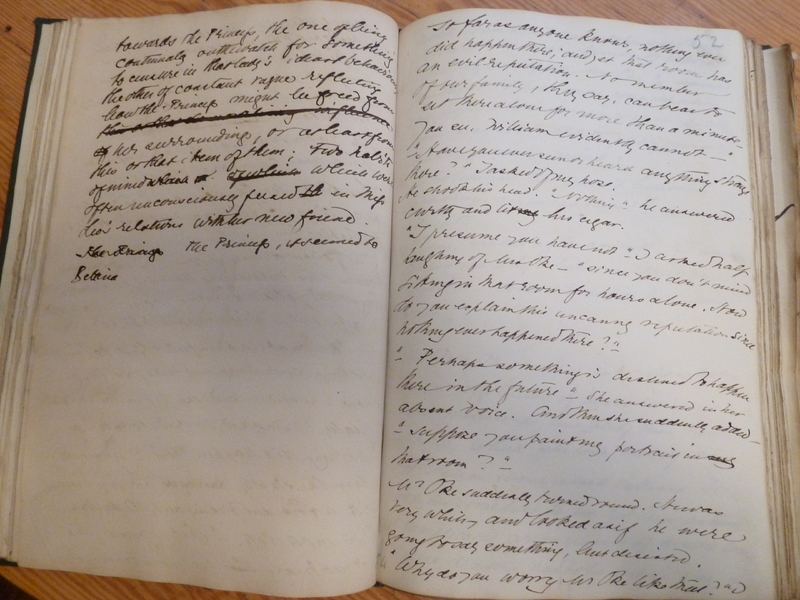 towards the Princess, the one of being
continually on the watch for something
to censure in that lady's ideas & behaviour,
the other of constant vague reflecting
how the Princess might be freed from
this or that
of her surroundings, or at least from
this or that item of them. Two habits
of mind which of which which were
often unconsciously fused in Miss
relations with her new friend.
The Princess, it seemed to
Bettina
52
so far as anyone knows, nothing ever
did happen there; and yet that room has
an evil reputation. No member
of our family, they say, can bear to
sit there alone for more than a minute.
You see, William evidently cannot —
"Have you ever seen or heard anything strange
there?" I asked of my host.
He shook his head. "Nothing", he answered
curtly and lit his cigar.
"I presume you have not" I asked half
laughing of Mrs Oke — "since you don't mind
sitting in that room for hours alone. How
do you explain this uncanny reputation since
nothing ever happened there?"
"Perhaps something is destined to happen
there in the future" she answered in her
absent voice. And then she suddenly added —
"Suppose you paint my portrait in
that room?"
Mr Oke suddenly turned round. He was
very white, and looked as if he were
going to say something, but desisted.
"Why do you worry Mr Oke like that?" I